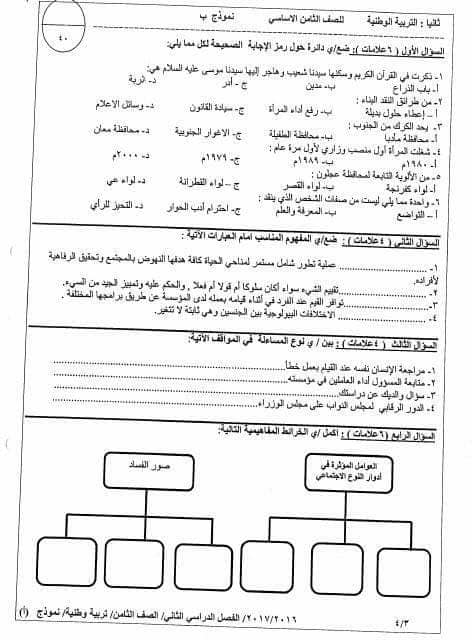 ثانيا : التربية الوطنية للصف الثامن الاساسي نموذج ب
٤٠
السؤال الأول ( ٦علامات ): ضع/ي دائرة حول رمز الإجابة الصحيحة لكل مما يلي:
١- ذكرت في القرآن الكريم وسكنها سيدنا شعيب وهاجر إليها سيدنا موسى عليه السلام هي:
أ- باب الذراع ب- مدين ج - أدر د- اثرية
٢- من طرائق النقد البناء :
أ – إعطاء حلول بديلة ب- رفع أداء المرأة ج- سيادة القانون د- وسائل الاعلام
٣- يحد الكرك من الجنوب :
أ- محافظة مادبا ب- محافظة الطفيلة ج- الاغوار الجنوبية د- محافظة معان
٤- شغلت المرأة أول منصب وزاري لأول مرة عام :
أ- ١٩٨٠م ب- ١٩٨٩م ج- ١٩٧٩م د- ٢٠٠٠م
٥- من الألوية التابعة لمحافظة عجلون :
أ- لواء كفرنجة ب- لواء القصر ج – لواء القطرانة د- لواء عي
٦- واحدة مما يلي ليست من صفات الشخص الذي ينقد :
أ – التواضع ب- المعرفة والعلم ج- احترام أدب الحوار د- التحيز للرأي
السؤال الثاني ( ٤علامات ) : ضع/ي المفهوم المناسب امام العبارات الآتية :
١- .................... عملية تطور شامل مستمر لمناحي الحياة كافة هدفها النهوض بالمجتمع وتحقيق الرفاهية
لأفراده.
٢- .................... تقييم الشيء سواء أكان سلوكا أم قولا أم فعلا , والحكم عليه وتمييز الجيد من السيء.
٣- .................... توافر القيم عند الفرد في أثناء قيامه بعمله لدى المؤسسة عن طريق برامجها المختلفة .
٤- .................... الاختلافات البيولوجية بين الجنسين وهي ثابتة لا تتغير.
السؤال الثالث ( ٤علامات ) : بين / ي نوع المساءلة في المواقف الآتية:
١- مراجعة الإنسان نفسه عند القيام بعمل خطأ....................
٢- متابعة المسؤول أداء العاملين في مؤسسته....................
٣- سؤال والديك عن دراستك....................
٤- الدور الرقابي لمجلس النواب على مجلس الوزراء....................
السؤال الرابع ( ٦علامات ) : اكمل /ي الخرائط المفاهيمية التالية:
العوامل المؤثرة في
أدوار النوع الاجتماعي
صور الفساد
٤/٣ ٢٠١٧/٢٠١٦/ الفصل الدراسي الثاني/ الصف الثامن/ تربية وطنية/ نموذج (أ)